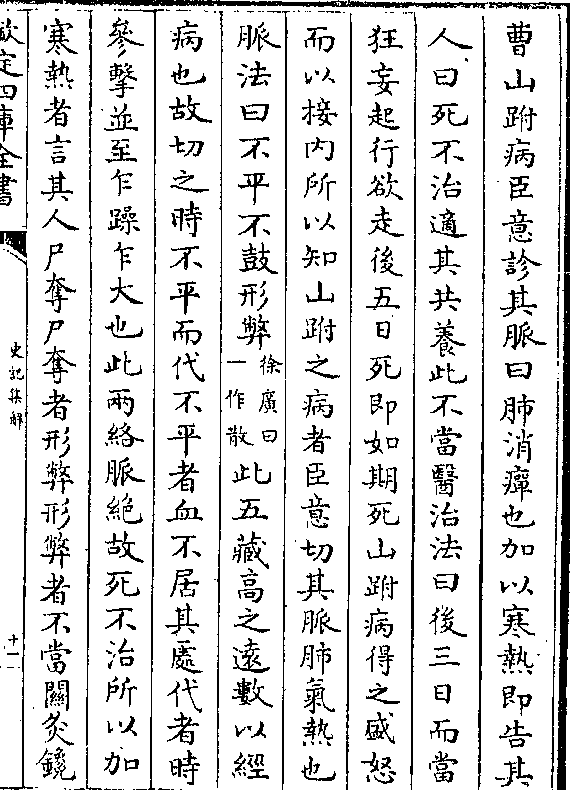 曹山跗病臣意診其脈曰肺消癉也加以寒熱即告其
人曰死不治適其共養此不當醫治法曰後三日而當
狂妄起行欲走後五日死即如期死山跗病得之盛怒
而以接内所以知山跗之病者臣意切其脈肺氣熱也
脈法曰不平不鼓形弊徐廣曰一作散此五藏高之遠數以經
病也故切之時不平而代不平者血不居其處代者時
參擊並至乍躁乍大也此兩絡脈絶故死不治所以加
寒熱者言其人尸奪尸奪者形弊形弊者不當關灸鑱
欽定四庫全書
史記集解
十一